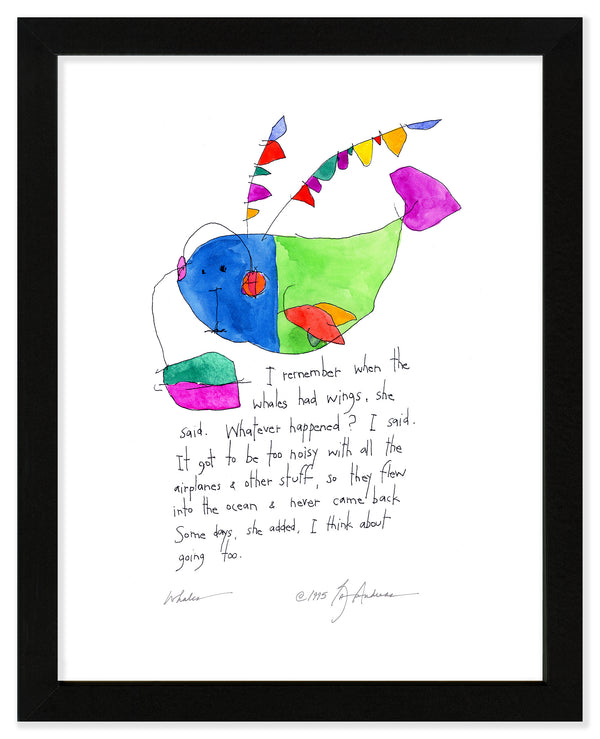 I remember when the
whales had wings, she
said. Whatever happened? I said.
It got to be too noisy with all the
airplanes & other stuff, so they flew
into the ocean & never came back
Some days, she added, I think about
going too.
Whales
©1995 Andreas